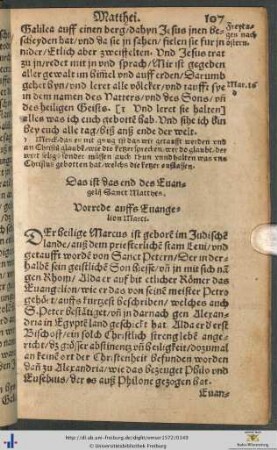 Matthei. 107
Galilea auff einen berg/dahyn Jesus jnen be-
scheyden hat/vnd da sie jn sahen/fielen sie für jn
nider/Etlich aber zweifelten. Vnd Jesus trat
zu jn/redet mit jn vnd sprach/Mir ist gegeben
aller gewalt im himel vnd auff erden/Darumb
gehet hyn/vnd leret alle völcker/vnd taufft sye
in dem namen des Vatters/vnd des Sons/vñ
des heiligen Geists. [† Vnd leret sie halten]
alles was ich euch gebotten hab. Vnd sihe ich bin
bey euch alle tag/biß anß ende der welt.
Freyta-
gen nach
ostern.
Mar.16
Das ist das end des Euan-
gelij Sanct Matthei.
Vorrede auffs Euange-
lion Marci.
DEr heilige Marcus ist geborn im Jüdischẽ
lande/auß dem priesterlichẽ stam Leui/vnd
getaufft wordẽ von Sanct Petern/Der in der-
halbẽ sein geistlichẽ Son heist/vñ jn mit sich nã
gen Rhom/Alda er auff bit etlicher Römer das
Euangelion/wie er das von seinẽ meister Petro
gehört/auffs kurtzest beschriben/welches auch
S.Peter bestätiget/vñ jn darnach gen Alexan-
dria in Egyptẽ land geschickt hat. Alda er d̓ erst
Bischoff/ein solch Christlich streng lebẽ ange-
richt/dz grösser abstineng vñ heiligkeit/dozumal
an keinẽ ort der Christenheit befunden worden
dañ zu Alexandria/wie das bezeuget Philo vnd
Eusebius/der es auß Philone gezogen hat.
Euan-
http://dl.ub.uni-freiburg.de/diglit/emser1572/0349
© Universitätsbibliothek Freiburg
Baden-Württemberg